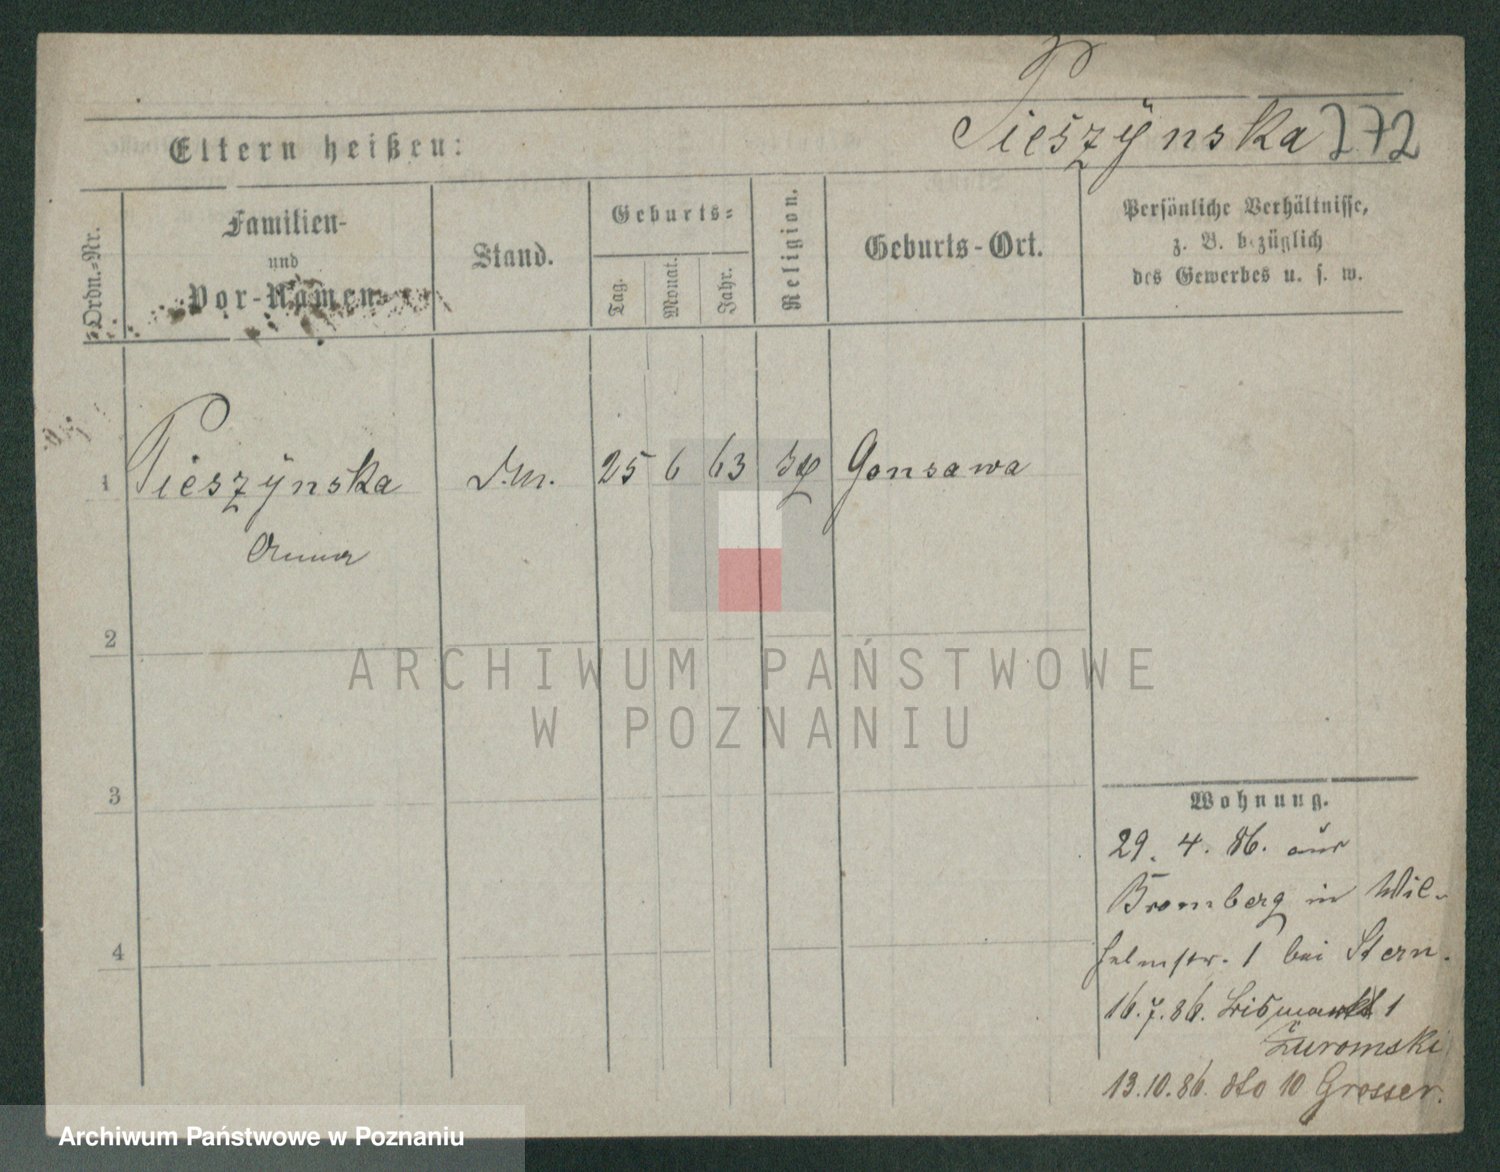 Pieszÿnska 272
Eltern heißen:
Ordn.-Nr.
Familien-
und
Vor-Namen.
Stand.
Geburts-
Tag.
Monat.
Jahr.
Religion.
Geburts-Ort.
Persönliche Verhältnisse,
z. B. bezüglich
des Gewerbes u. s. w.
1 Pieszÿnska 25 6 63 Gonsawa
Anna
2
3
4
Wohnung.
29. 4. 86. aus
Bromberg in Wil-
helmstr. 1 bei Stern.
16.7.86. Bismarkst 1
Żuromski
13.10.86. dto 10 Grosser.
ARCHIWUM PAŃSTWOWE
W POZNANIU
Archiwum Państwowe w Poznaniu